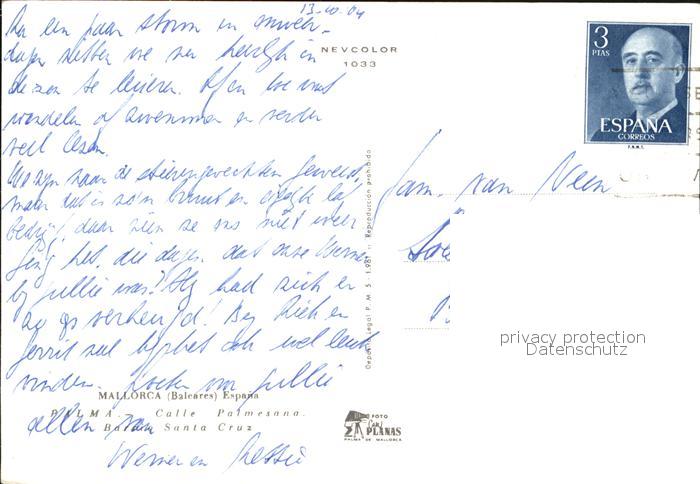 13-10-64
Na een paar storm en onweer-
dagen zitten we nu heerlijk in
de zon te luieren. Af en toe wat
wandelen of zwemmen en verder
veel lezen.
We zijn naar de stierengevechten geweest,
maar dat is zo'n bruut en
daar zien ze ons niet weer
Ging het, die dagen dat onze
bij jullie was? Hij had zich er
zo op verheugd! Bij Rich en
Gerrit zal hij het ook wel leuk
vinden. Groeten voor jullie
allen van
Werner en
NEVCOLOR
1033
3
PTAS
ESPAÑA
CORREOS
F.N.M.T.
Fam. van Veen
Deposito Legal P. M. 5 - 1.961 :: Reproducción prohibida
privacy protection
Datenschutz
MALLORCA (Baleares) España
PALMA. - Calle Palmesana.
Barrio Santa Cruz
FOTO
PLANAS
PALMA DE MALLORCA